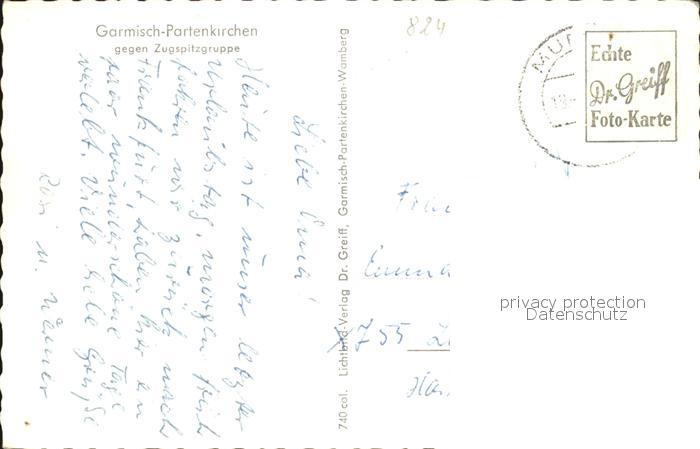 Garmisch-Partenkirchen
gegen Zugspitzgruppe
824
Echte
Dr. Greiff
Foto-Karte
MUR
740 col. Lichtbild-Verlag Dr. Greiff, Garmisch-Partenkirchen-Wamberg
Liebe
Heute ist unser letzter
Urlaubstag, morgen früh
fahren wir zurück nach
Frankfurt, haben hier ein
paar wunderschöne Tage
verlebt. Viele liebe Grüße
u. Werner
Frau
Emma
X755
privacy protection
Datenschutz